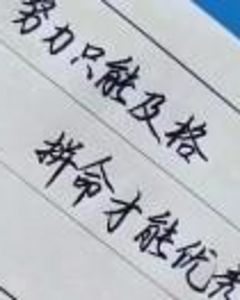 努力只能及格
拼命才能优秀